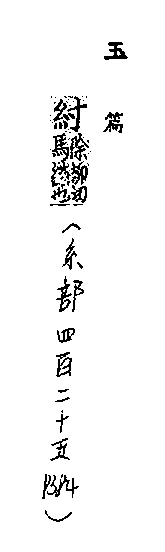 玉篇
紂 除柳切 馬緧也
(糸部四百二十五 13/4)